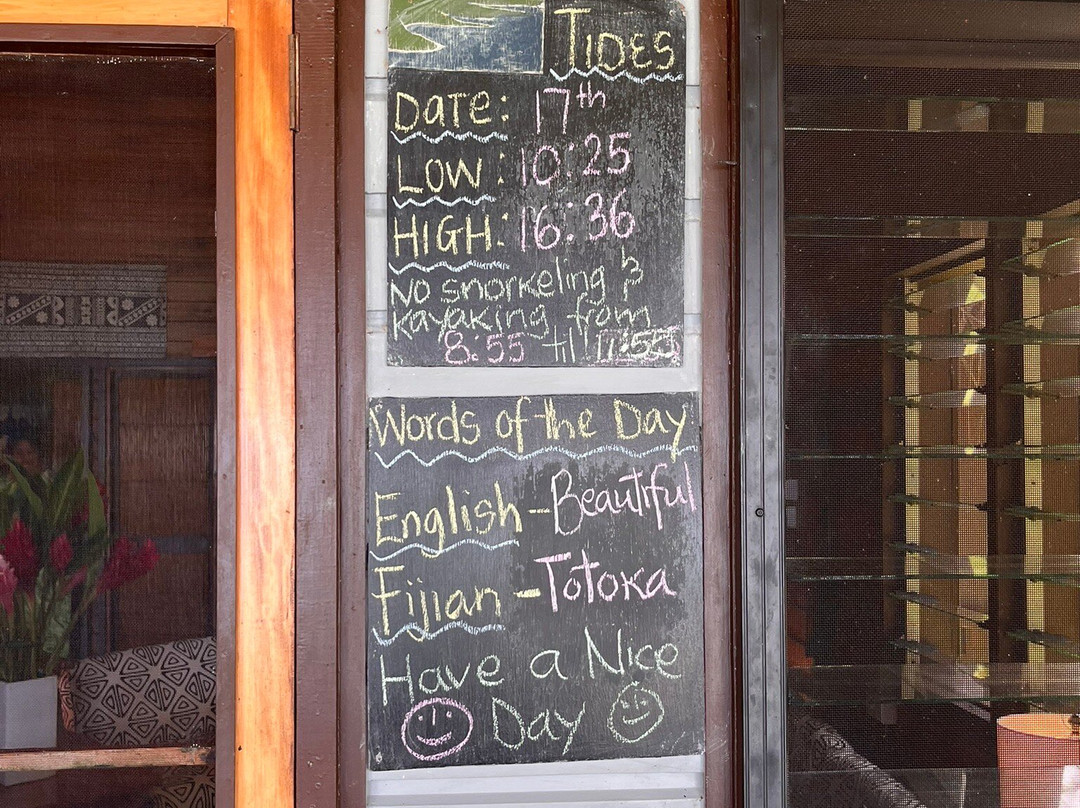 TIDES
DATE: 17th
LOW: 10:25
HIGH: 16:36
No snorkeling &
kayaking from
8:55 til 11:55
Words of the Day
English - Beautiful
Fijian - Totoka
Have a Nice
Day